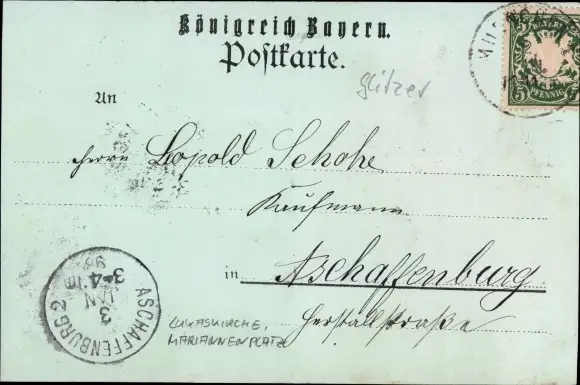 Königreich Bayern.
Postkarte.
glitzer
MÜNCHEN
BAYERN
5 5
PFENNIG
An
Herrn Leopold Schohe
Kaufmann
in Aschaffenburg
Herstallstraße
ASCHAFFENBURG 2
3
JAN
3-4
98
LUKASKIRCHE,
MARIANNENPLATZ